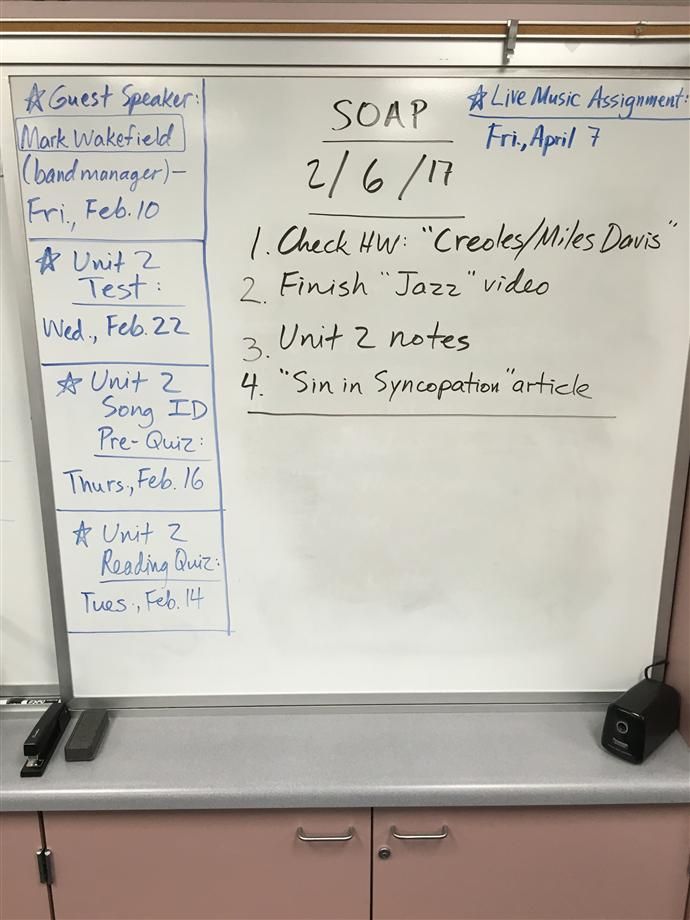 ☆ Guest Speaker:
Mark Wakefield
(band manager)–
Fri., Feb. 10
☆ Unit 2
Test:
Wed., Feb. 22
☆ Unit 2
Song ID
Pre-Quiz:
Thurs., Feb. 16
☆ Unit 2
Reading Quiz:
Tues., Feb. 14
SOAP
2/6/17
1. Check HW: "Creoles/Miles Davis"
2. Finish "Jazz" video
3. Unit 2 notes
4. "Sin in Syncopation" article
☆ Live Music Assignment:
Fri., April 7